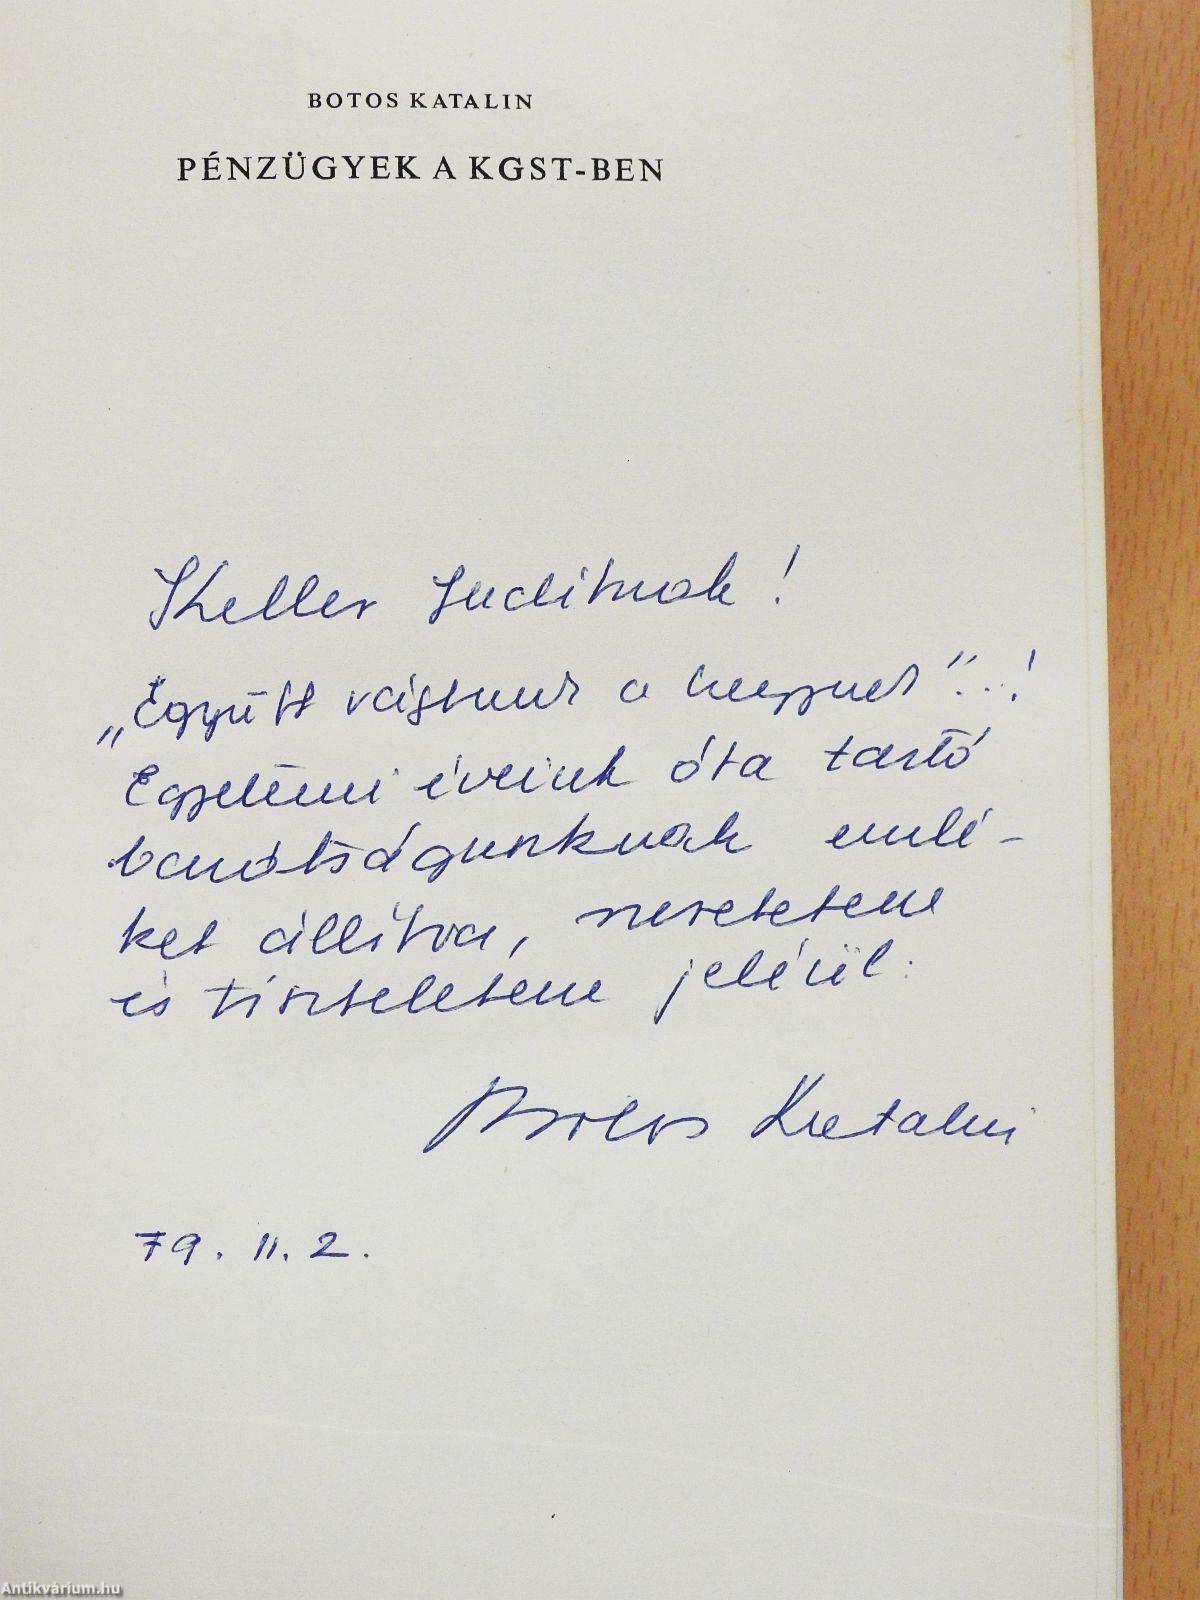 BOTOS KATALIN
PÉNZÜGYEK A KGST-BEN
Keller Juditnak!
„Együtt vágtunk a hegynek"...!
Egyetemi éveink óta tartó
barátságunknak emlé-
ket állítva, szeretetem
és tiszteletem jeléül:
Botos Katalin
79. II. 2.
Antikvárium.hu